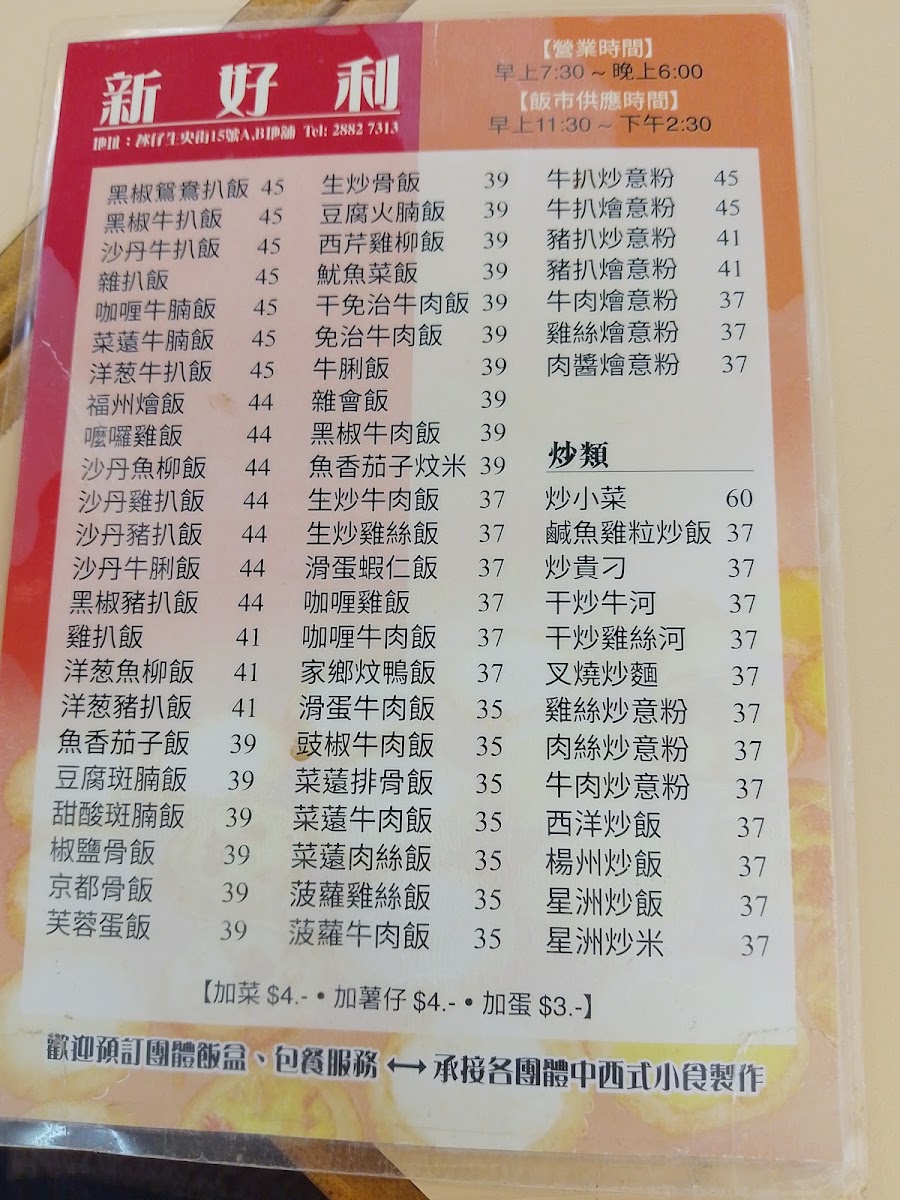 新好利
地址：氹仔生央街15號A,B地舖 Tel: 2882 7313
【營業時間】
早上7:30 ~ 晚上6:00
【飯市供應時間】
早上11:30 ~ 下午2:30
黑椒鴛鴦扒飯 45
黑椒牛扒飯 45
沙丹牛扒飯 45
雜扒飯 45
咖喱牛腩飯 45
菜薳牛腩飯 45
洋葱牛扒飯 45
福州燴飯 44
嚒囉雞飯 44
沙丹魚柳飯 44
沙丹雞扒飯 44
沙丹豬扒飯 44
沙丹牛脷飯 44
黑椒豬扒飯 44
雞扒飯 41
洋葱魚柳飯 41
洋葱豬扒飯 41
魚香茄子飯 39
豆腐斑腩飯 39
甜酸斑腩飯 39
椒鹽骨飯 39
京都骨飯 39
芙蓉蛋飯 39
生炒骨飯 39
豆腐火腩飯 39
西芹雞柳飯 39
魷魚菜飯 39
干免治牛肉飯 39
免治牛肉飯 39
牛脷飯 39
雜會飯 39
黑椒牛肉飯 39
魚香茄子炆米 39
生炒牛肉飯 37
生炒雞絲飯 37
滑蛋蝦仁飯 37
咖喱雞飯 37
咖喱牛肉飯 37
家鄉炆鴨飯 37
滑蛋牛肉飯 35
豉椒牛肉飯 35
菜薳排骨飯 35
菜薳牛肉飯 35
菜薳肉絲飯 35
菠蘿雞絲飯 35
菠蘿牛肉飯 35
牛扒炒意粉 45
牛扒燴意粉 45
豬扒炒意粉 41
豬扒燴意粉 41
牛肉燴意粉 37
雞絲燴意粉 37
肉醬燴意粉 37
炒類
炒小菜 60
鹹魚雞粒炒飯 37
炒貴刁 37
干炒牛河 37
干炒雞絲河 37
叉燒炒麵 37
雞絲炒意粉 37
肉絲炒意粉 37
牛肉炒意粉 37
西洋炒飯 37
楊州炒飯 37
星洲炒飯 37
星洲炒米 37
【加菜 $4.-•加薯仔 $4.-•加蛋 $3.-】
歡迎預訂團體飯盒、包餐服務 ↔ 承接各團體中西式小食製作